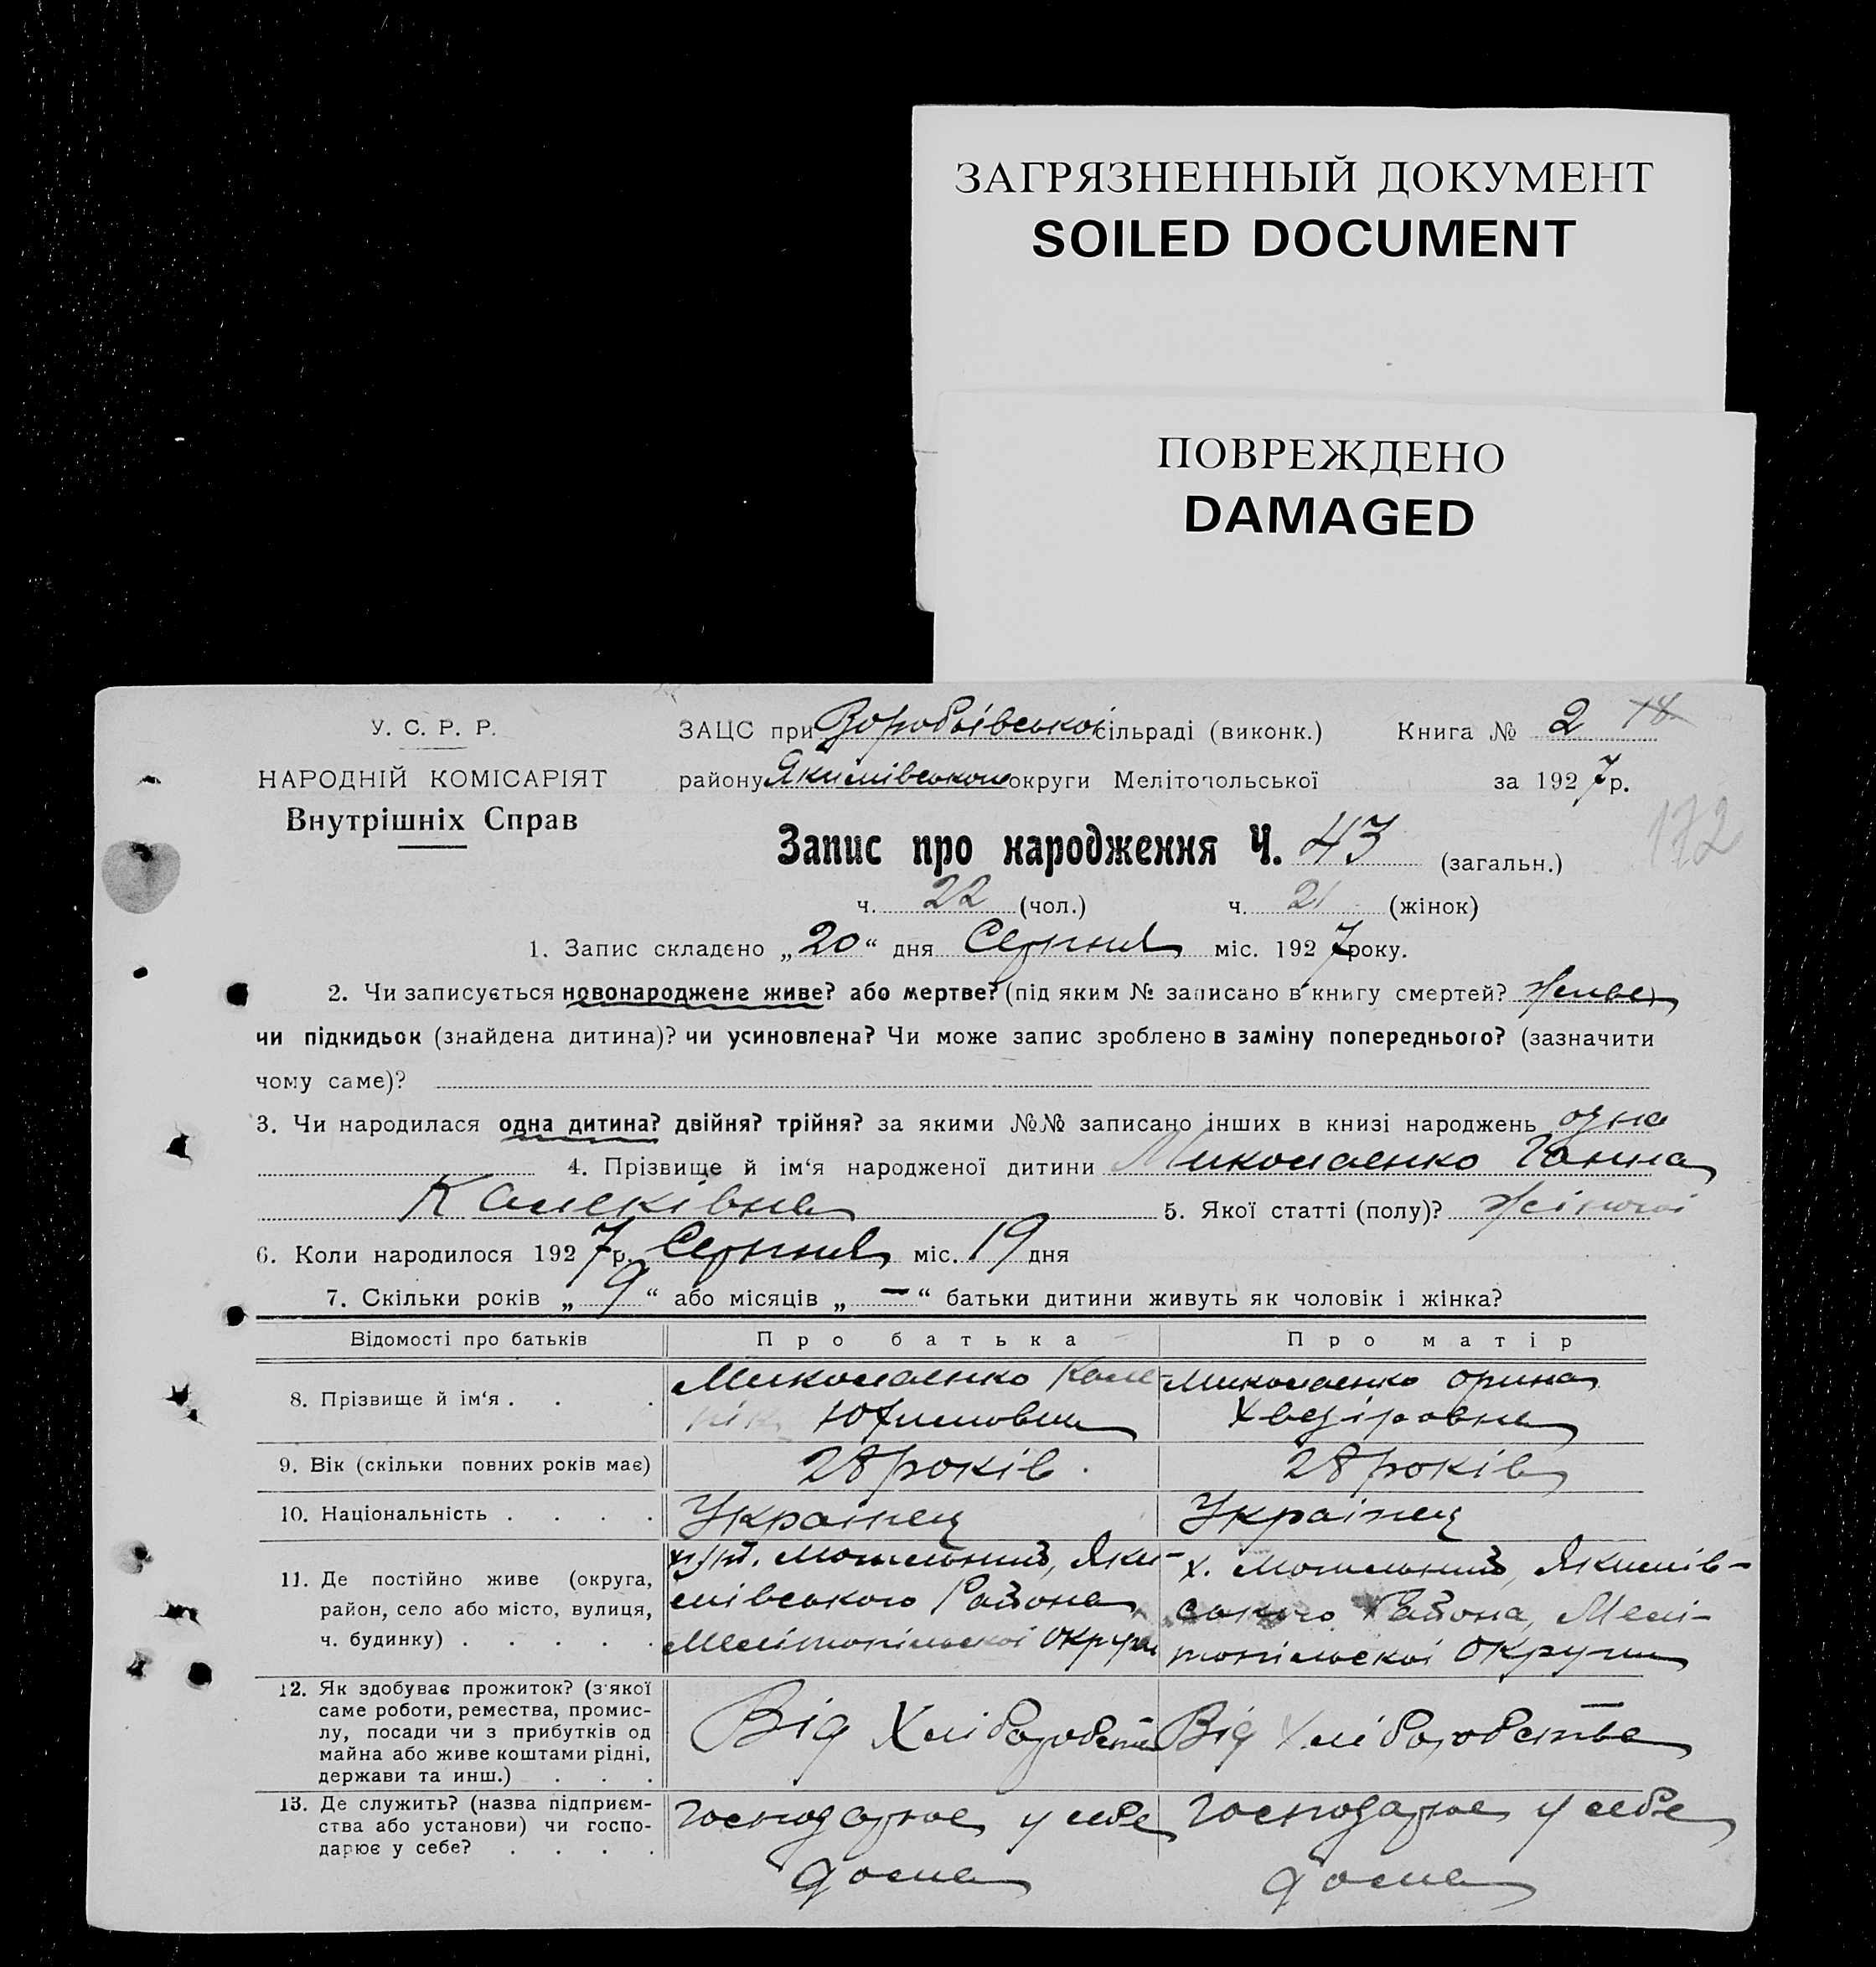 ЗАГРЯЗНЕННЫЙ ДОКУМЕНТ
SOILED DOCUMENT
ПОВРЕЖДЕНО
DAMAGED
У. С. Р. Р.
НАРОДНІЙ КОМІСАРІЯТ
Внутрішніх Справ
ЗАЦС при Воробьівської сільраді (виконк.) Книга № 2 18
району Якимівського округи Мелітопольської за 1927 р.
172
Запис про народження Ч. 43 (загальн.)
ч. 22 (чол.) ч. 21 (жінок)
1. Запис складено „20“ дня Серпня міс. 1927 року.
2. Чи записується новонароджене живе? або мертве? (під яким № записано в книгу смертей? живе
чи підкидьок (знайдена дитина)? чи усиновлена? Чи може запис зроблено в заміну попереднього? (зазначити
чому саме)?
3. Чи народилася одна дитина? двійня? трійня? за якими №№ записано інших в книзі народжень одна
4. Прізвище й ім‘я народженої дитини Миколаенко Ганна
5. Якої статті (полу)? жіночої
6. Коли народилося 1927 р. Серпня міс. 19 дня
7. Скільки років „9“ або місяців „—“ батьки дитини живуть як чоловік і жінка?
Відомості про батьків Про батька Про матір
8. Прізвище й ім‘я . . .
Миколаенко
Юхимович
Миколаенко Орина
Хведіровна
9. Вік (скільки повних років має) 28 років. 28 років
10. Національність . . . . Українец Українец
11. Де постійно живе (округа,
район, село або місто, вулиця,
ч. будинку) . . . . .
хут. Могильний, Яки-
мівського Района
Мелітопільскої Округи
х. Могильний, Якимів-
ського Района, Мелі-
топільскої Округи
12. Як здобуває прожиток? (з якої
саме роботи, ремества, промис-
лу, посади чи з прибутків од
майна або живе коштами рідні,
держави та инш.) . . .
Від Хліборобства
Від Хліборобства
13. Де служить? (назва підприєм-
ства або установи) чи госпо-
дарює у себе? . . . .
Господарює у себе
дома
Господарює у себе
дома